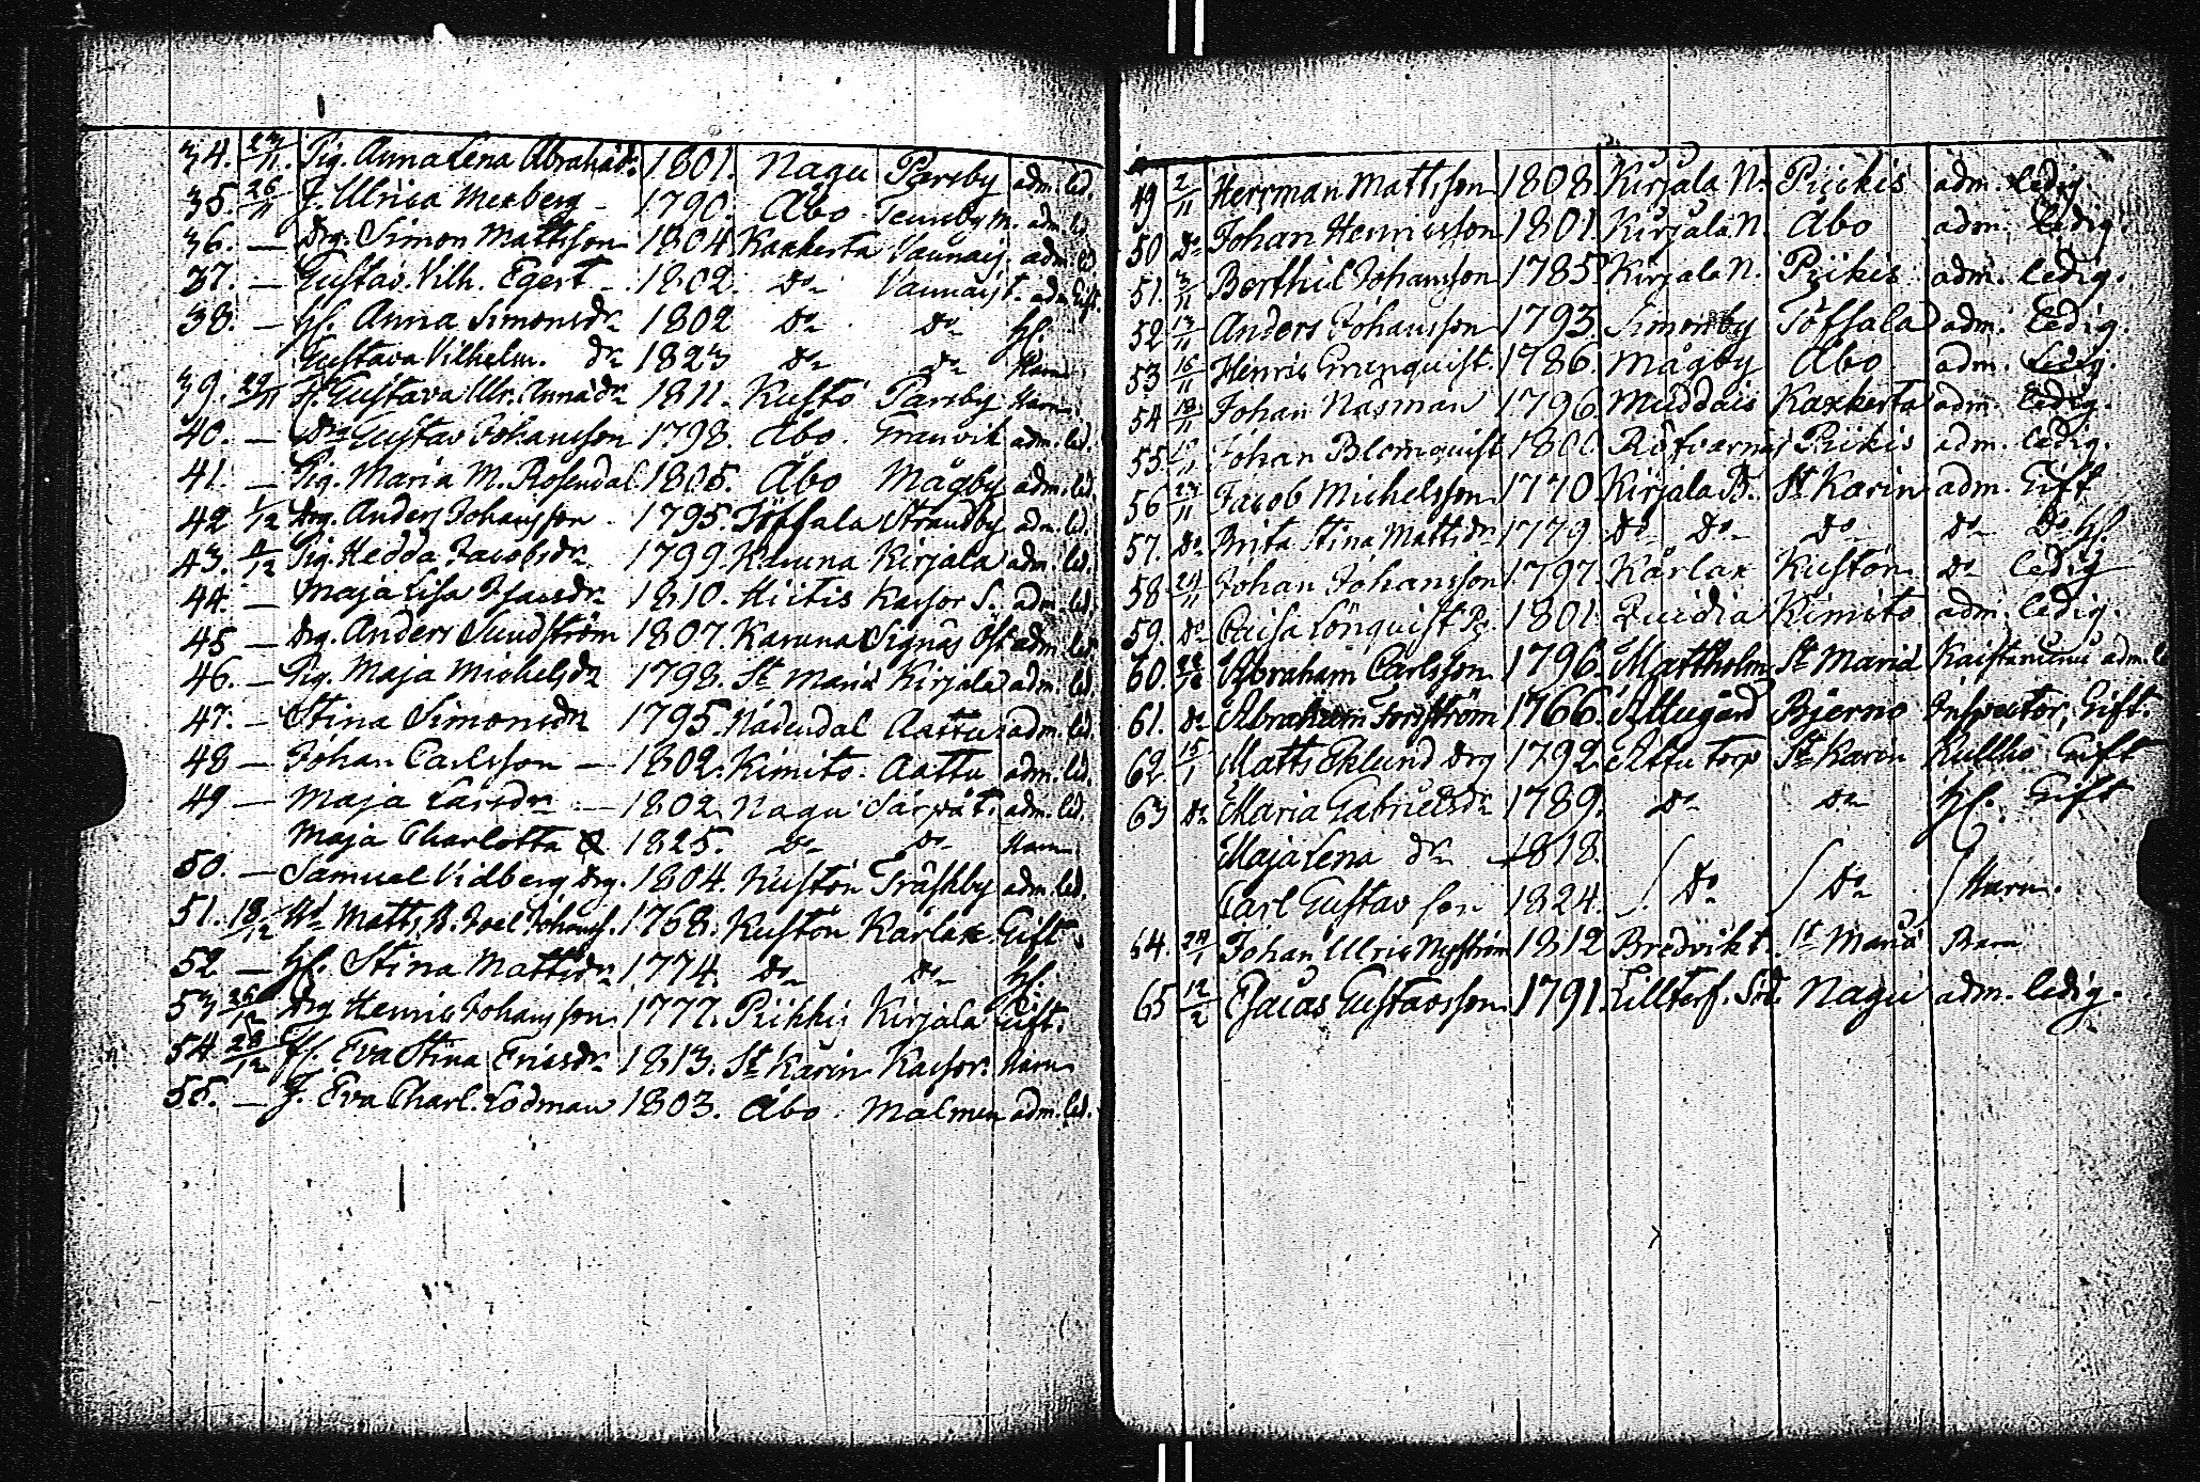 34. 23/11. Pig. Anna Lena Abrahãdr. 1801. Nagu Parsby adm. led.
35. 26/11 J. Ulrica Mexberg - 1790. Åbo adm. led.
36. — Drg. Simon Mattsson 1804 Kaxkerta Vannais adm. led.
37. — Gustav. Vilh. Egert - 1802. Do Vannais t. adm. Gift.
38. — Hf. Anna Simonsdr 1802 Do Do Hf.
Gustava Vilhelm. dr 1823 Do Do Barn
39. 29/11 Gustava Ulr. Annædr 1811. Kustö Parsby Barn
40. — Drg Gustav Johansson 1798. Åbo. Granvik adm. led.
41. — Pig. Maria M. Rosendal 1805. Åbo Mågby adm. led.
42 1/12 Drg. Anders Johansson. 1795. Töfsala Strandby adm. led.
43. 4/12 Pig. Hedda Jacobsdr. 1799. Karuna Kirjala adm. led.
44. — Maja Lisa Isacsdr 1810. Hiitis Kassor S. adm. led.
45 — Drg. Anders Sundström 1807. Karuna Signäs Öf. adm. led.
46. — Pig. Maja Michelsdr 1798. St Mariæ Kirjala adm. led.
47. — Stina Simonsdr 1795. Nådendal Aattu adm. led.
48 — Johan Carlsson — 1802. Kimito. Aattu adm. led.
49 — Maja Larsdr — 1802. Nagu Särpät. adm. led.
Maja Charlotta 1825. Do Do Barn
50. — Samuel Vidberg Drg. 1804. Kustön Träskby adm. led.
51. 18/12 Matts B. Joel Johanss. 1768. Kustön Kårlax. Gift.
52 — Hf. Stina Mattsdr 1774. Do Do Hf.
53 26/12 Drg Henric Johansson. 1777. Piikkis Kirjala Gift.
54 28/12 Eva Stina Ericsdr 1813. St Karin Kassor. Barn
55. — J. Eva Charl. Lödman 1803. Åbo. Malmen adm. led.
49 2/11 Herrman Mattsson 1808. Kirjala N. Piickis adm. ledig.
50 Do Johan Henricsson 1801. Kirjala N. Åbo adm. ledig.
51. 3/11 Berthil Johansson 1785. Kirjala N. Piikis adm. ledig.
52 13/11 Anders Johansson 1793. Simonby Töfsala adm. ledig.
53 16/11 Henric Grenquist. 1786. Mågby Åbo adm. ledig.
54 18/11 Johan Näsman 1796. Muddais Kaxkerta adm. ledig.
55. Johan Blomquist 1800. Röfvarnäs Piikis adm. ledig.
56 Jacob Michelsson 1770. Kirjala St Karin adm. Gift
57. Do Brita Stina Mattsdr 1779 Do Do Do Do Do Hf.
58 Johan Johansson 1797. Kårlax Kustön Do ledig
59. Do Caisa Lönquist Pg. 1801. Quidia Kimito adm. ledig.
60. Abraham Carlsson 1796. Mattholm St Mariæ adm.
61. Do Abraham Forsström 1766. Attugård Bjerno Inspector, Gift.
62. 15/1 Matts Eklund Drg 1792. Attu torp St Karin Kullho Gift
63 Do Maria Gabrielsdr 1789. Do Do Hf. Gift
Maja Lena dr 1818.
Carl Gustav son 1824. Do Do Barn.
64. 24/1 Johan Ulric Nyström 1812 Bredvik t. St Mariæ Barn
65 12/2 Esaias Gustavsson. 1791. Lillterf. Söd. Nagu adm. ledig.